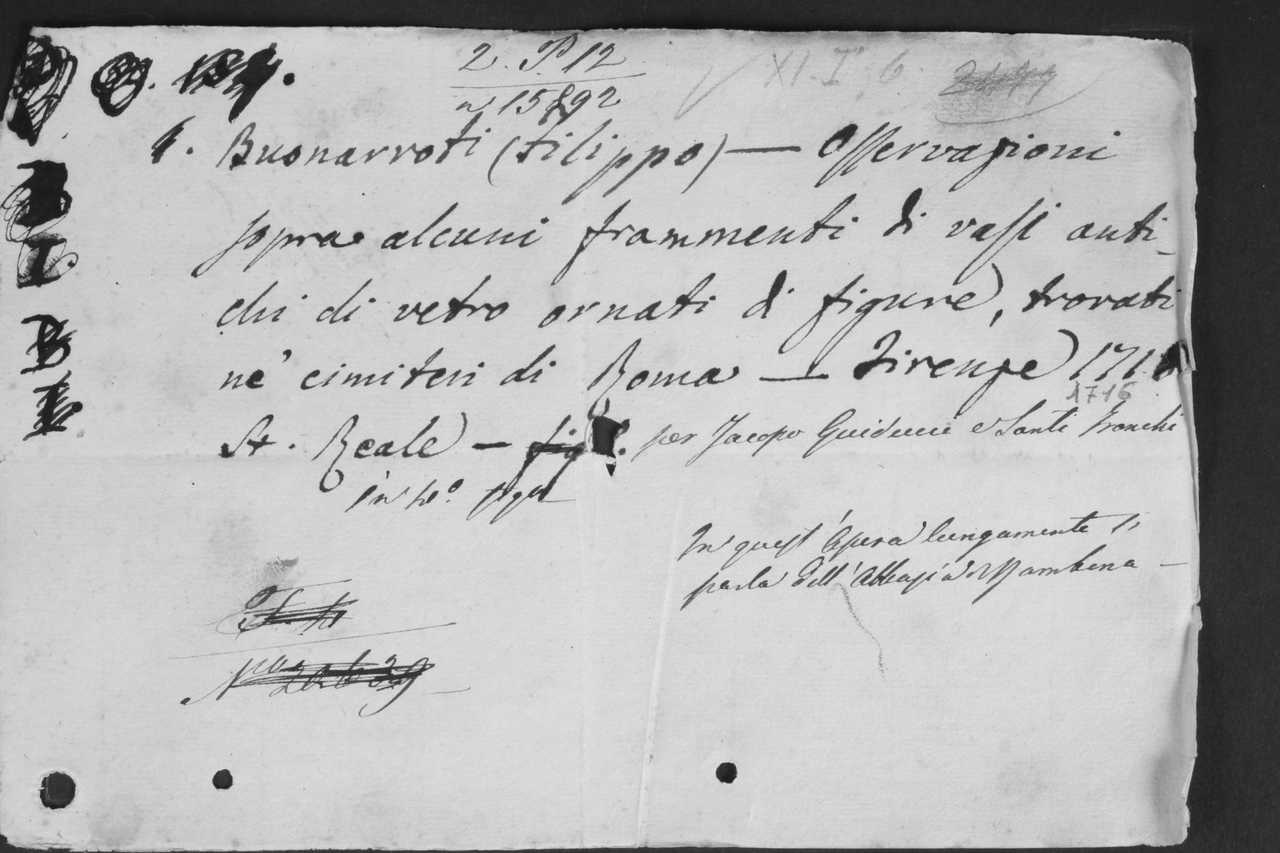 2. P. 12
XI. I. 6.
n. 15892
4. Buonarroti (Filippo) — Osservazioni
sopra alcuni frammenti di vasi anti-
chi di vetro ornati di figure, trovati
ne' cimiteri di Roma — Firenze 171
1716
St. Reale — fig. per Jacopo Guiducci e Santi Franchi
in 4º. fig.
In quest'Opera lungamente si
parla dell'Abbazia di Rambona —